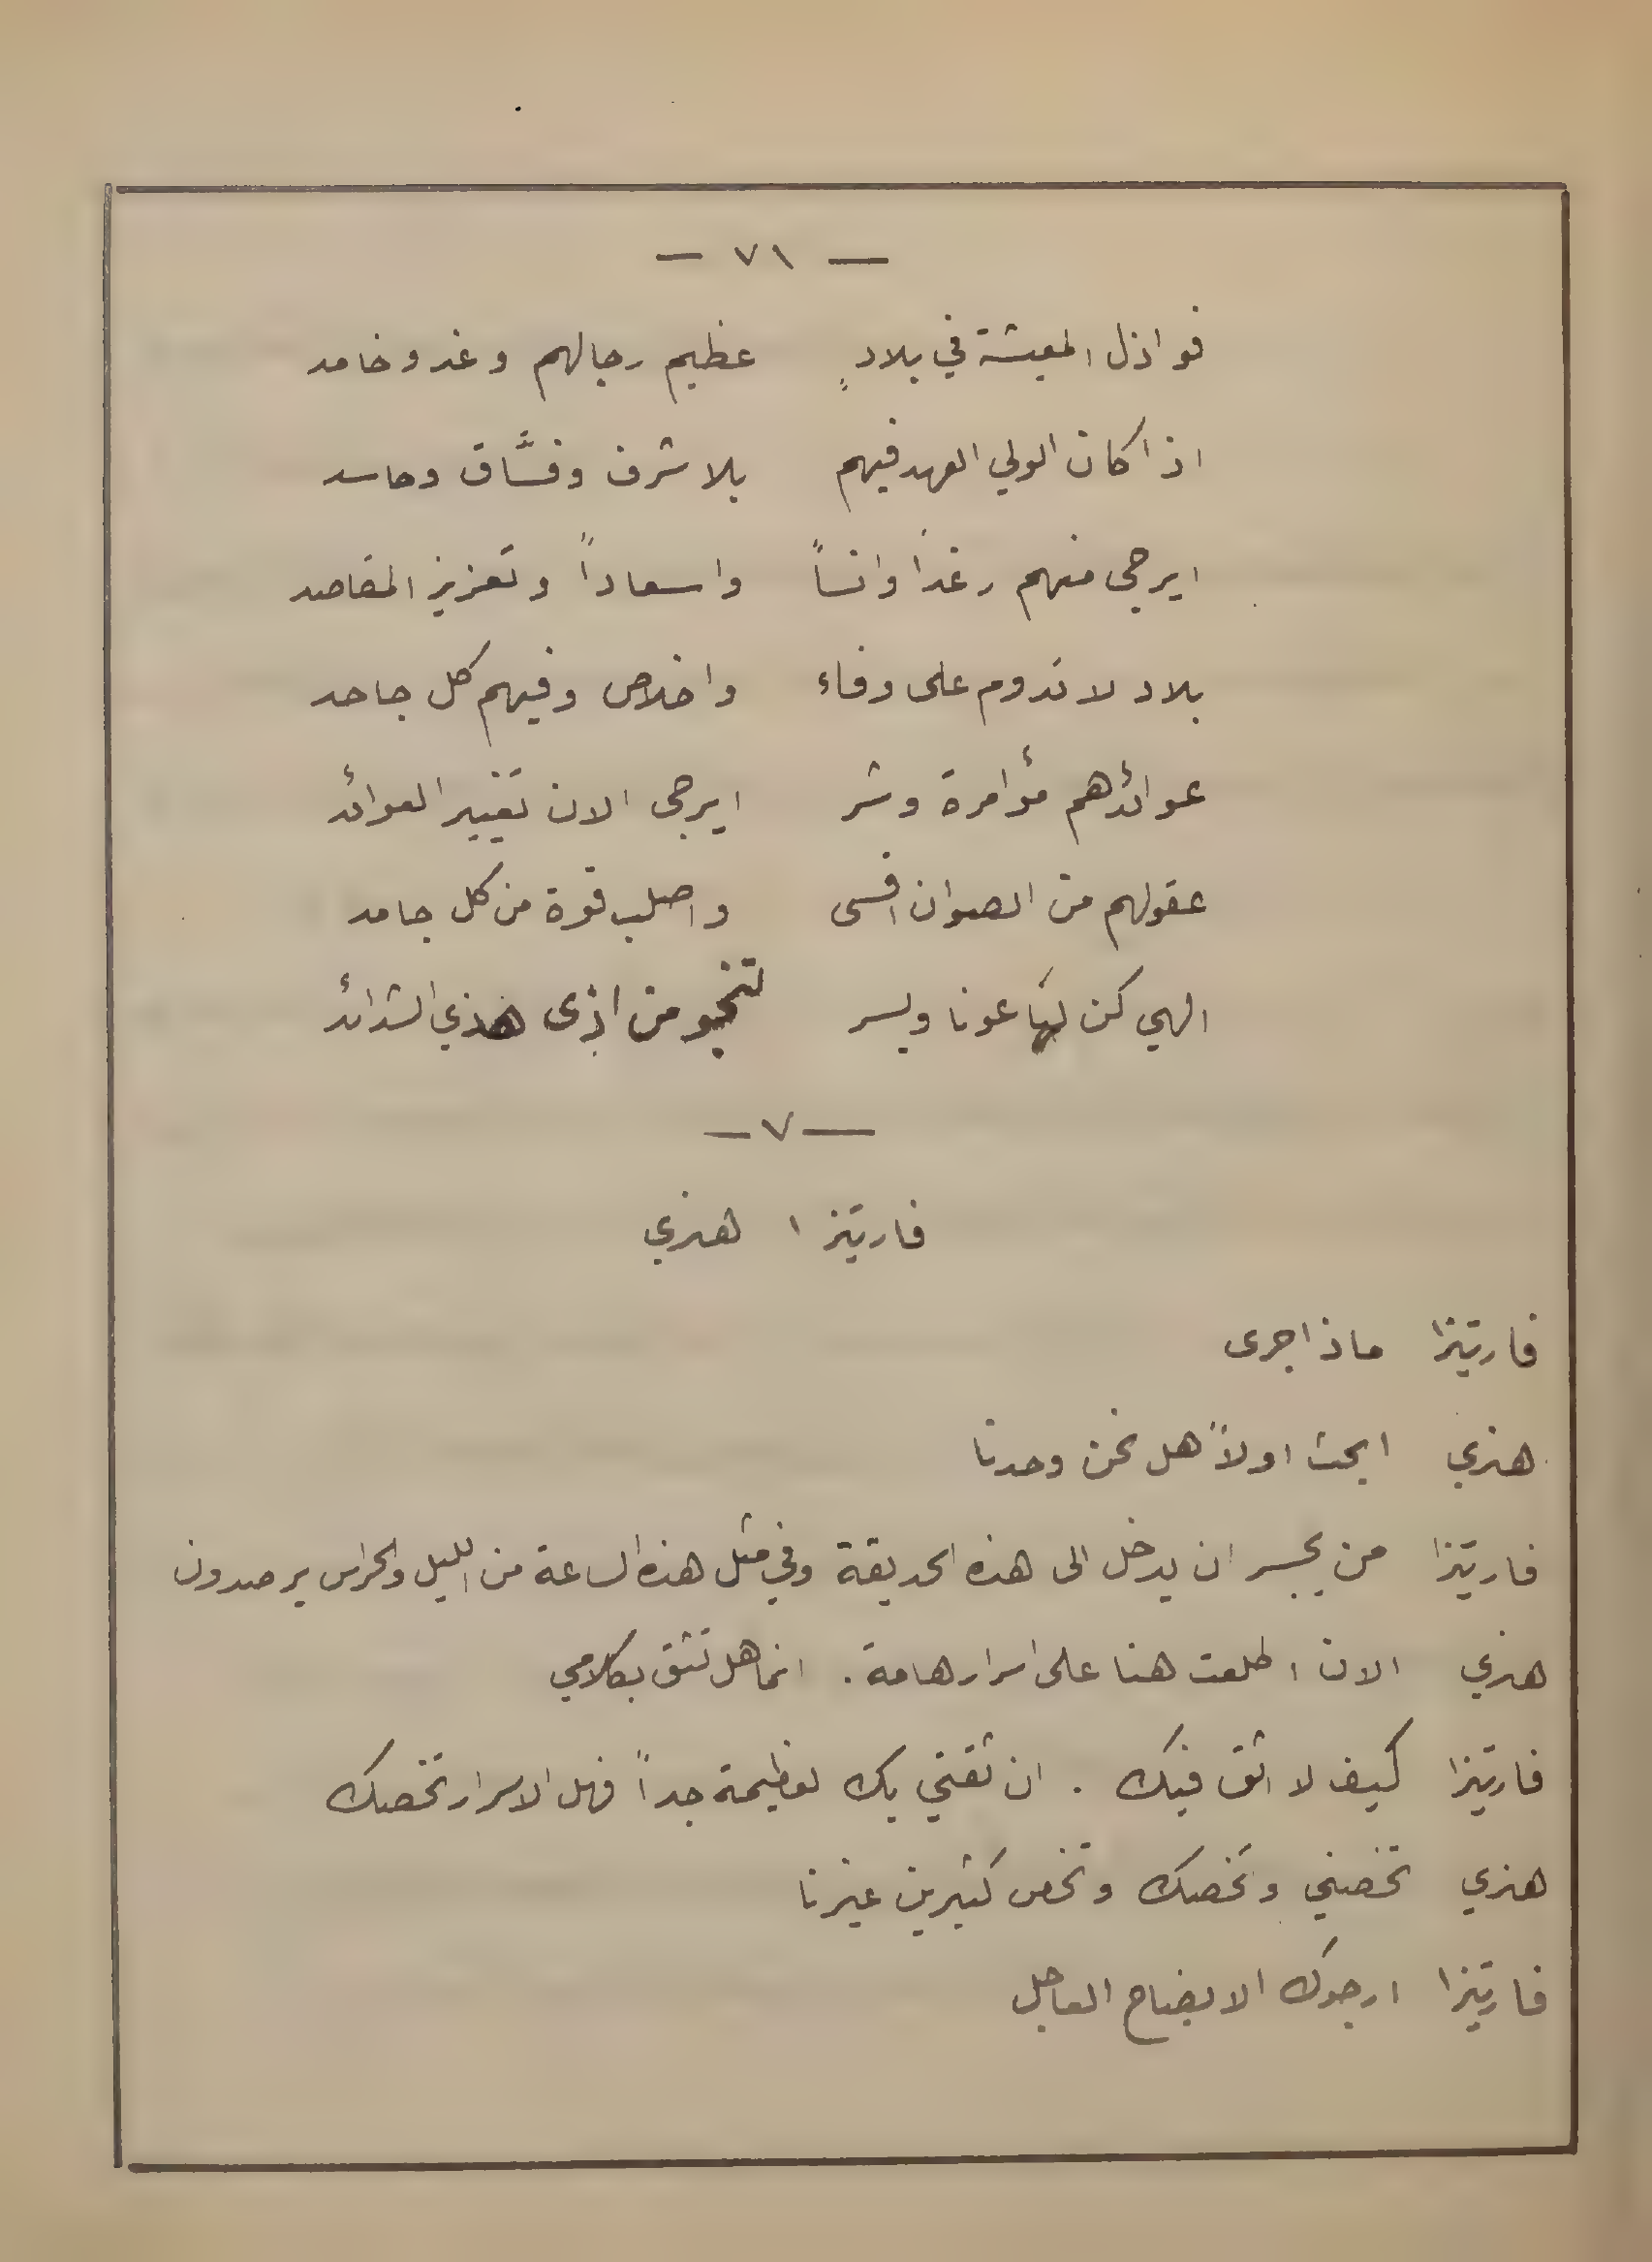 — ٧١ —
فوا ذل المعيشة في بلادٍ عظيم رجالهم وغد وخامد
اذا كان الولي العهد فيهم بلا شرف وفسَّاق وحاسد
ايرجى منهم رغداً وانساً واسعاداً وتعزيز المقاصد
بلاد لا تدوم على وفاء واخلاص وفيهم كل جاحد
عوائدهم مؤامرة وشر ايرجى الان تغيير العوائد
عقولهم من الصوان اقسى واصلب قوة من كل جامد
الهي كن لنا عونا ويسر لننجو من اذى هذي الشدائد
— ٧ —
فارتيزا هنري
فارتيزا ماذا جرى
هنري ابحث اولاً هل نحن وحدنا
فارتيزا من يجسر ان يدخل الى هذه الحديقة وفي مثل هذه الساعة من الليل والحراس يرصدون
هنري الان اطلعت هنا على اسرار هامة . انما هل تثق بكلامي
فارتيزا كيف لا اثق فيك . ان ثقتي بك لعظيمة جداً فهل الاسرار تخصك
هنري تخصني وتخصك وتخص كثيرين غيرنا
فارتيزا ارجوك الايضاح العاجل